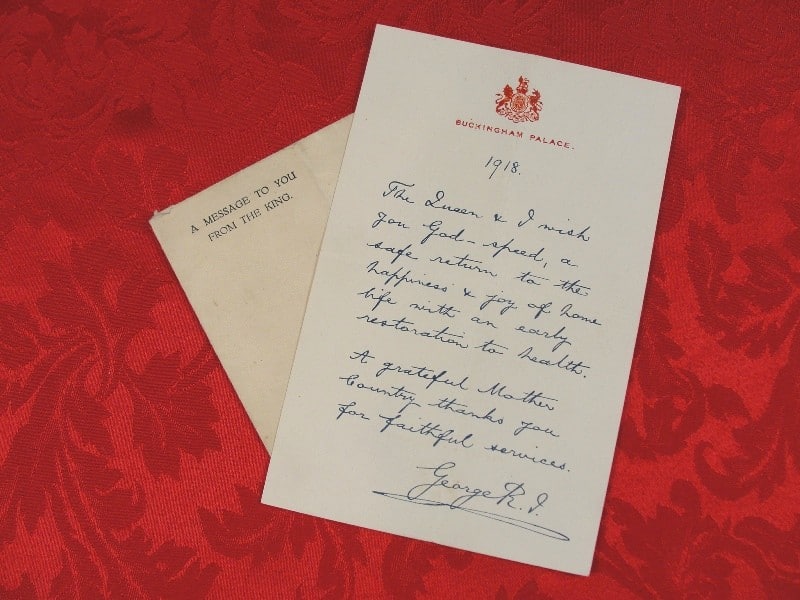 A MESSAGE TO YOU
FROM THE KING.
BUCKINGHAM PALACE.
1918.
The Queen & I wish
you God-speed, a
safe return to the
happiness & joy of home
life with an early
restoration to health.
A grateful Mother
Country thanks you
for faithful services.
George R.I.